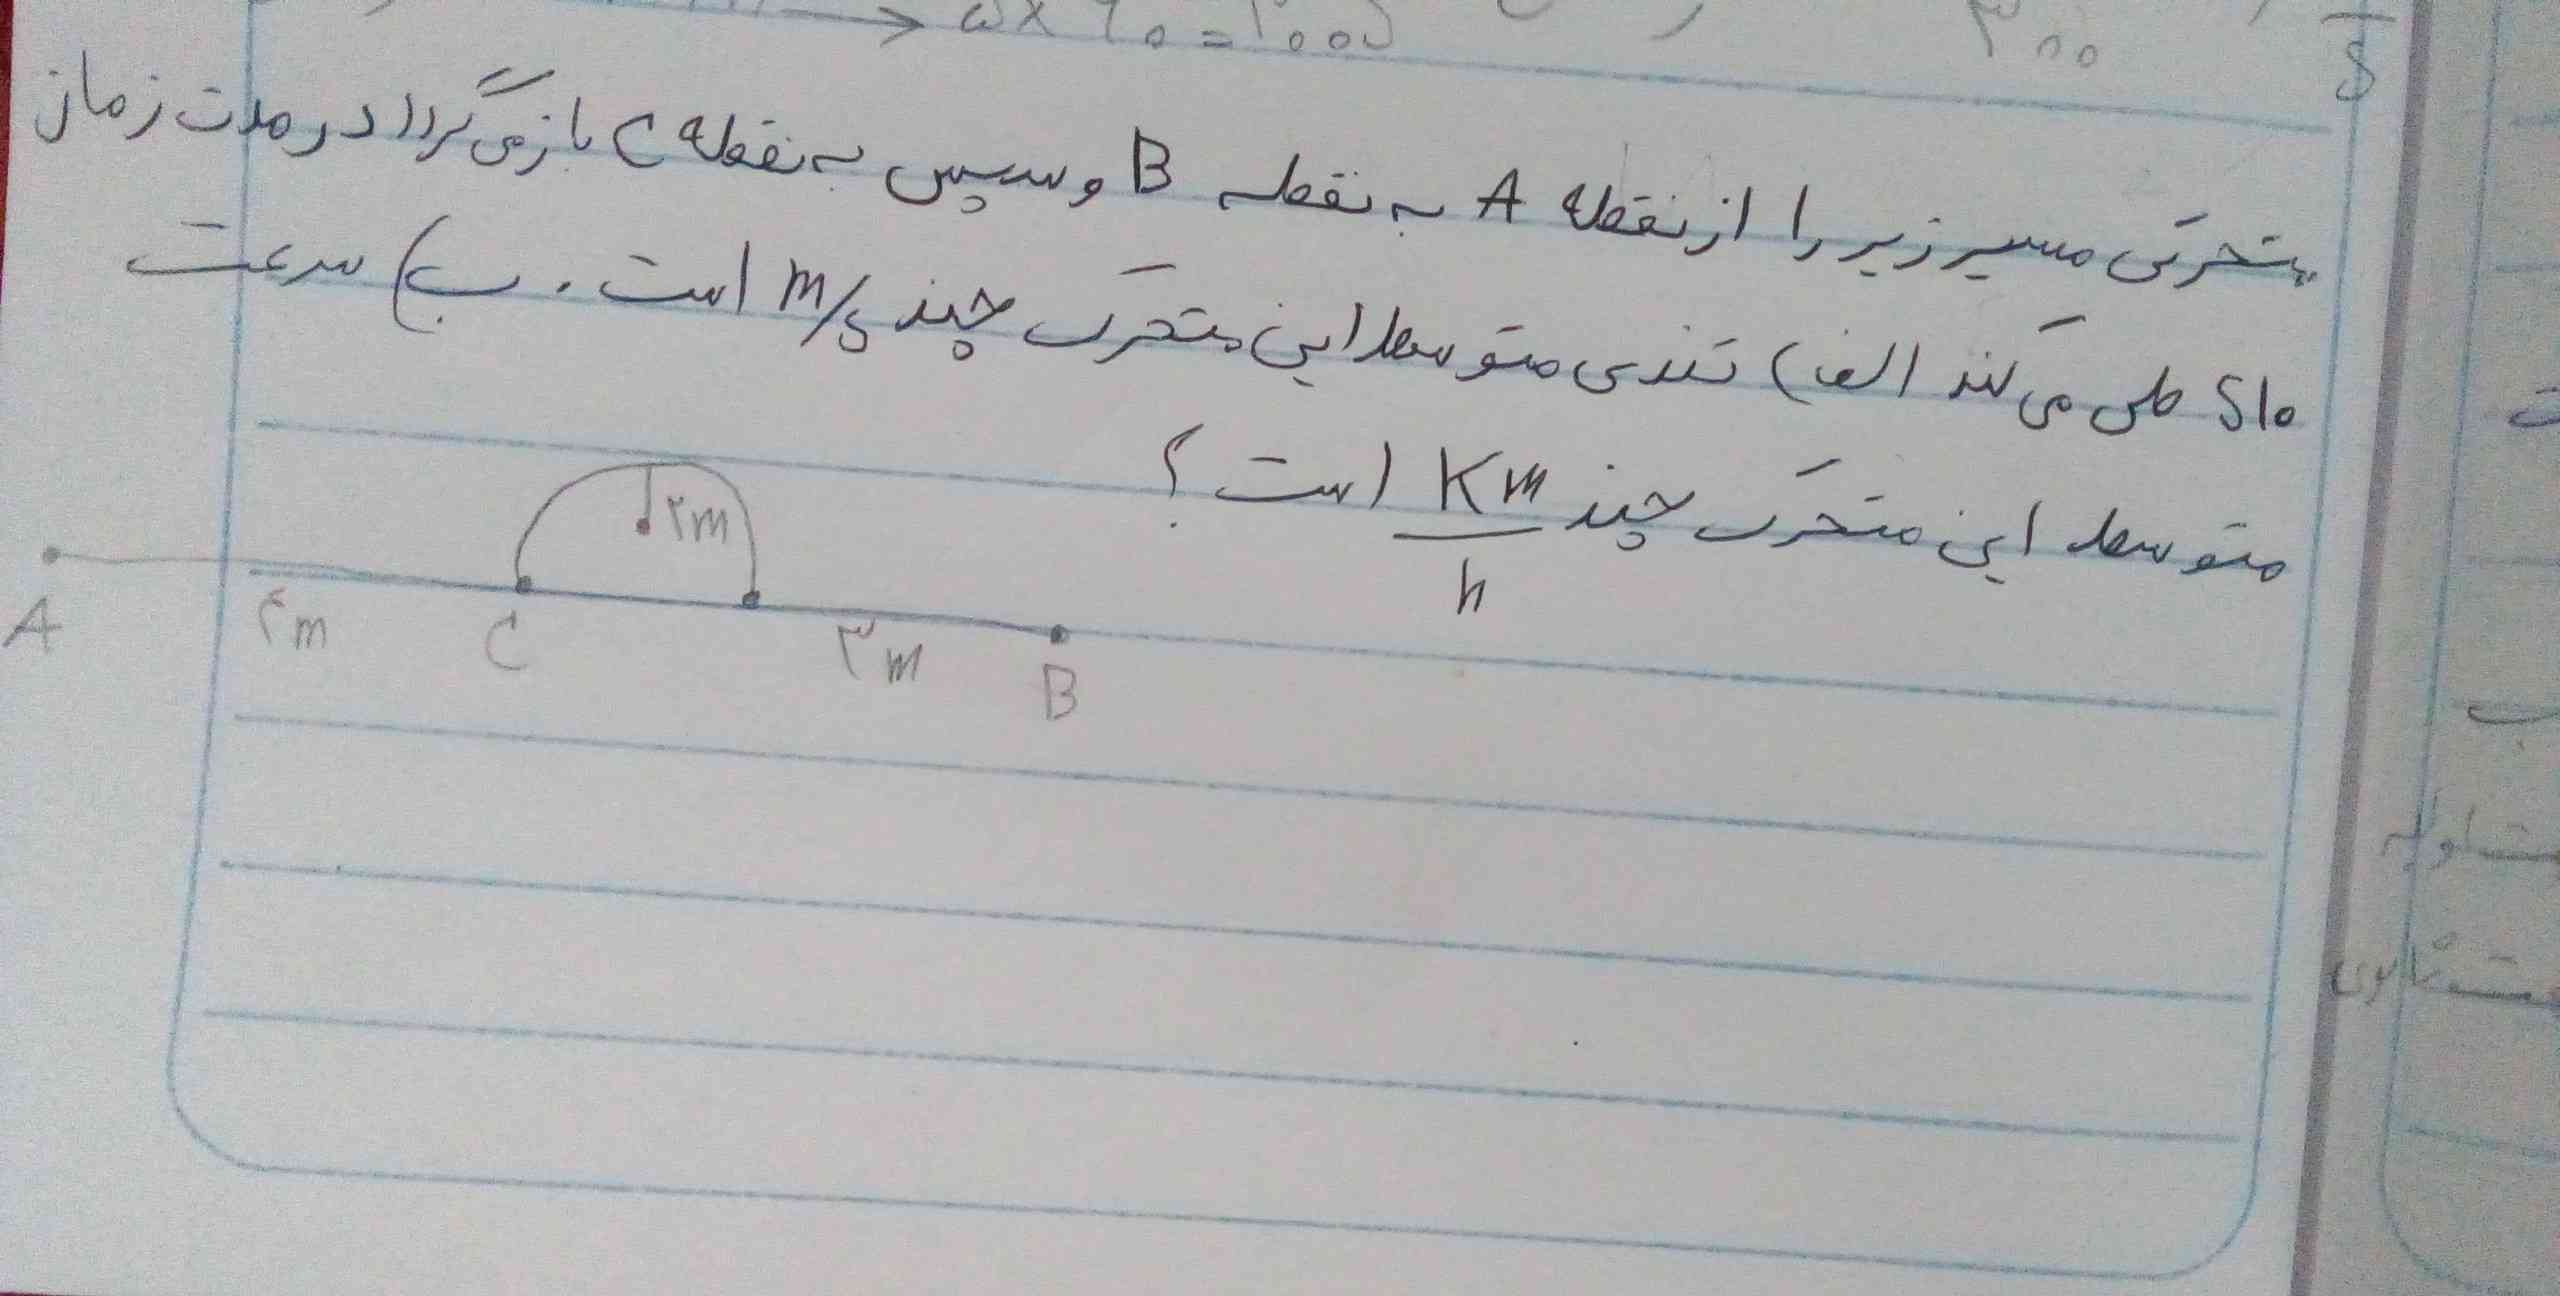 ۳۰۰
متحرکی مسیر زیر را از نقطه A به نقطه B و سپس به نقطه C باز می گردد در مدت زمان
۱۰s طی می کند الف) تندی متوسط این متحرک چند m/s است. ب) سرعت
متوسط این متحرک چند Km/h است؟
۲m
A
۴m
C
۳m
B